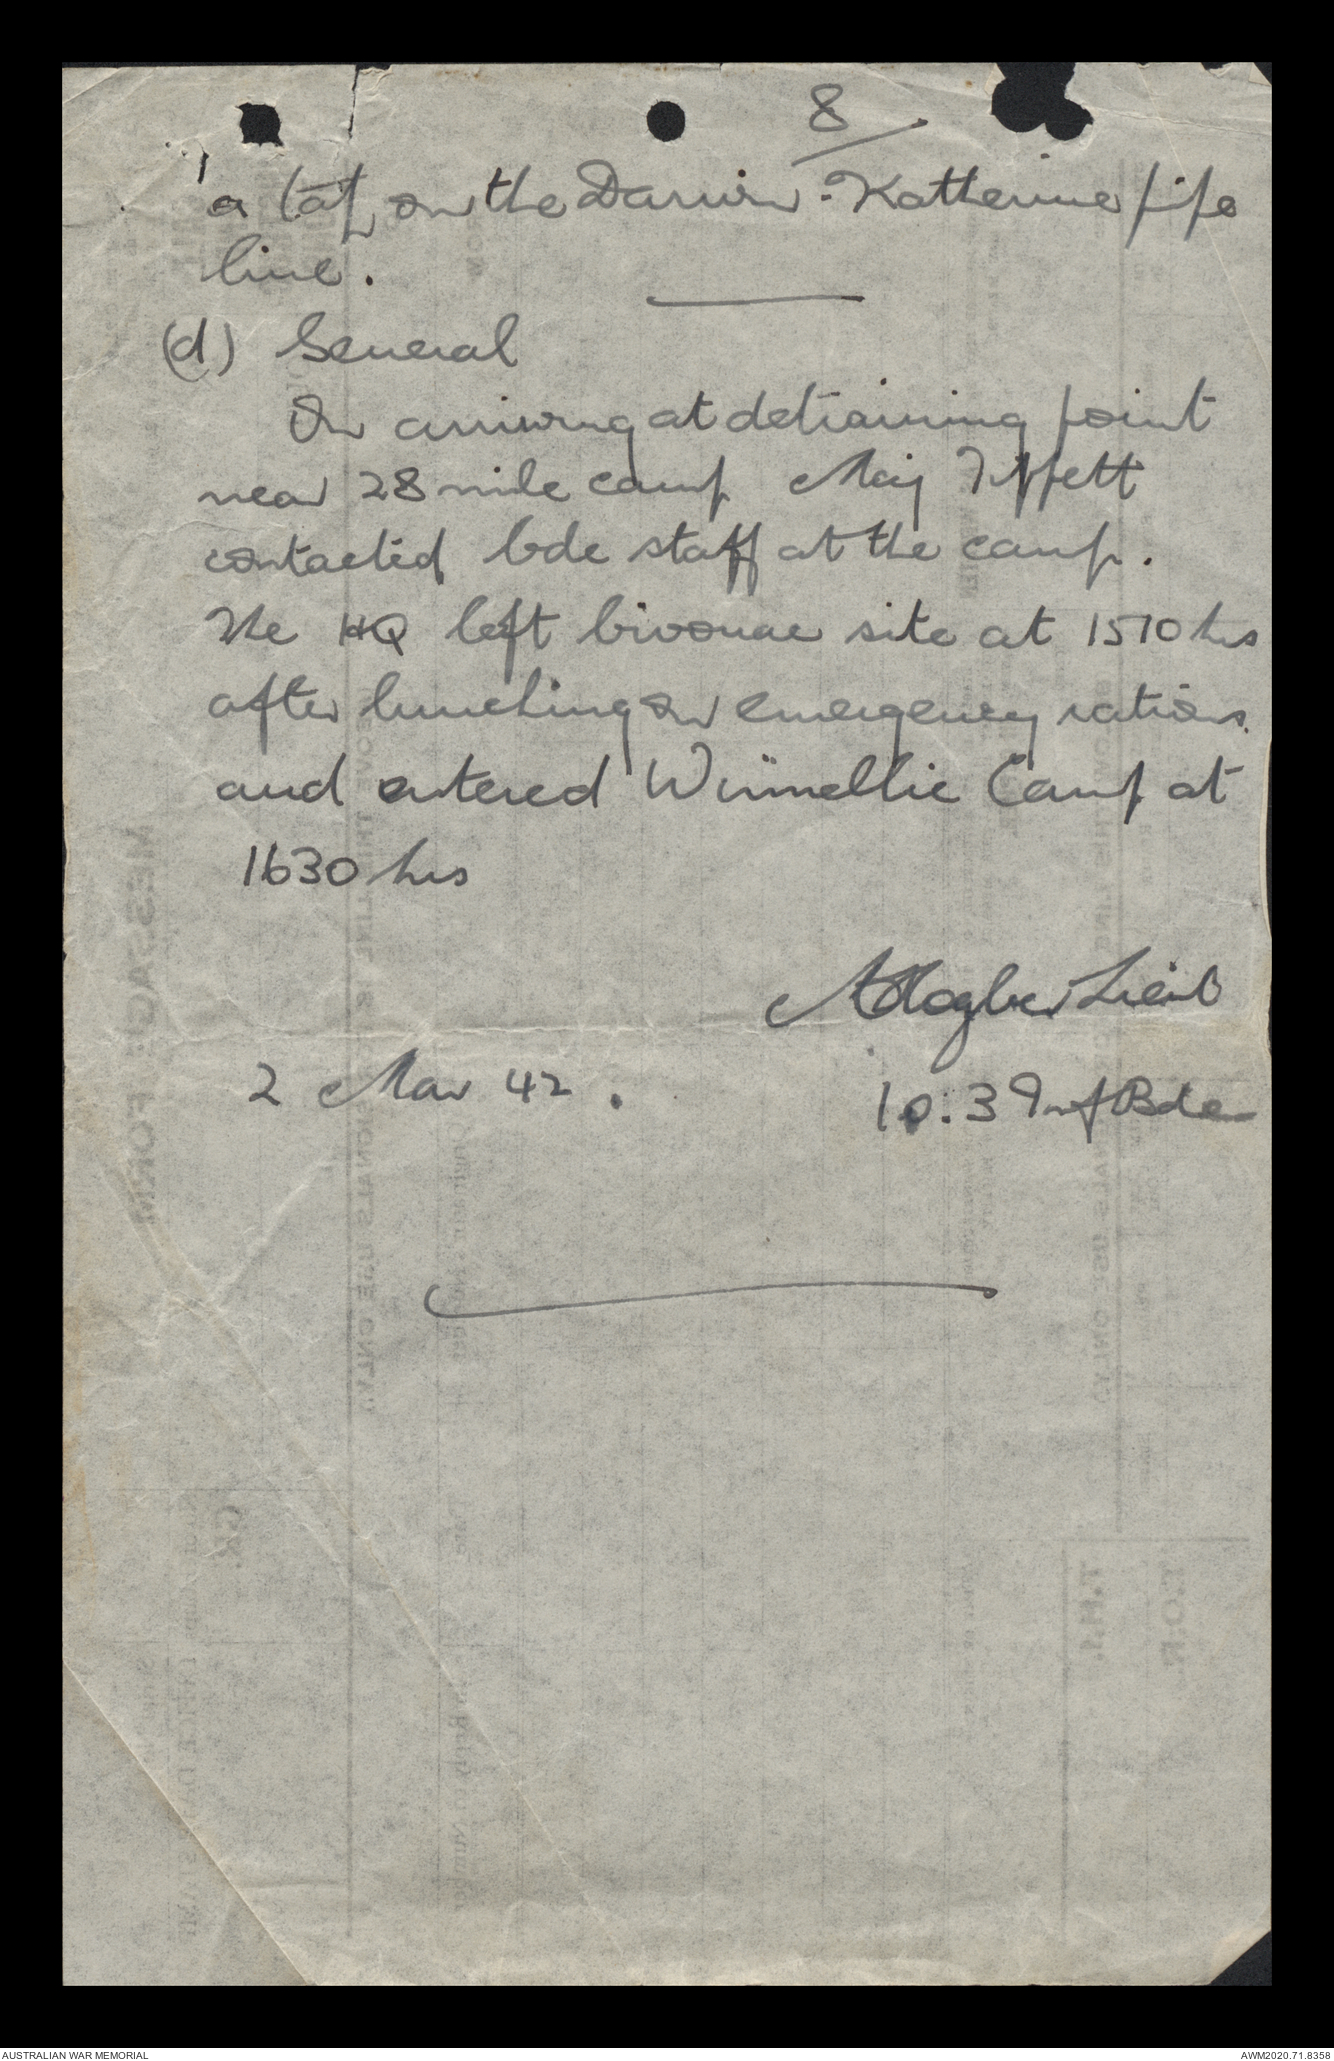 8
a tap on the Darwin-Katherine pipe
line.
(d) General
On arriving at detraining point
near 28 mile camp Maj Tippett
contacted bde staff at the camp.
The HQ left bivouac site at 1510 hrs
after lunching on emergency rations
and entered Winnellie Camp at
1630 hrs
Lieut
2 Mar 42.
IO. 3 Inf Bde
MESSAGE FORM
AUSTRALIAN WAR MEMORIAL
AWM2020.71.8358